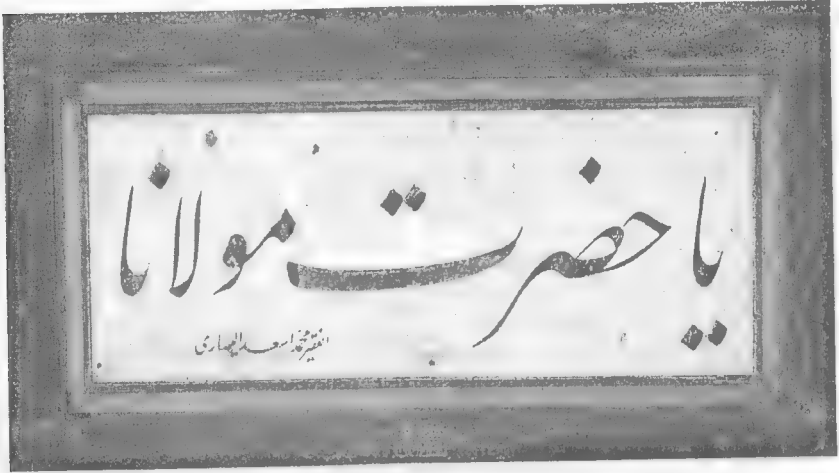 يا حضرت مولانا
الفقير محمد اسعد اليسارى